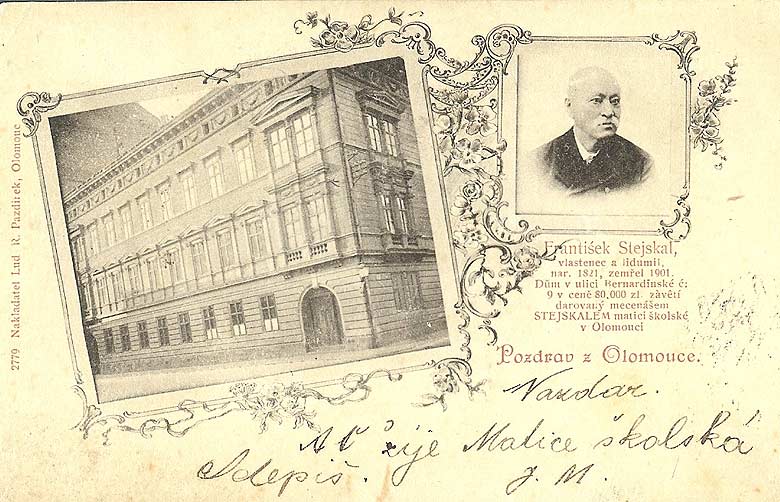 František Stejskal,
vlastenec a lidumil,
nar. 1821, zemřel 1901.
Dům v ulici Bernardinské č:
9 v ceně 80,000 zl. závětí
darovaný mecenášem
STEJSKALEM matici školské
v Olomouci
Pozdrav z Olomouce.
Nazdar.
Ať žije Matice školská
Odepiš. J. M.
2779 Nakladatel Lud R. Pazdírek, Olomouc